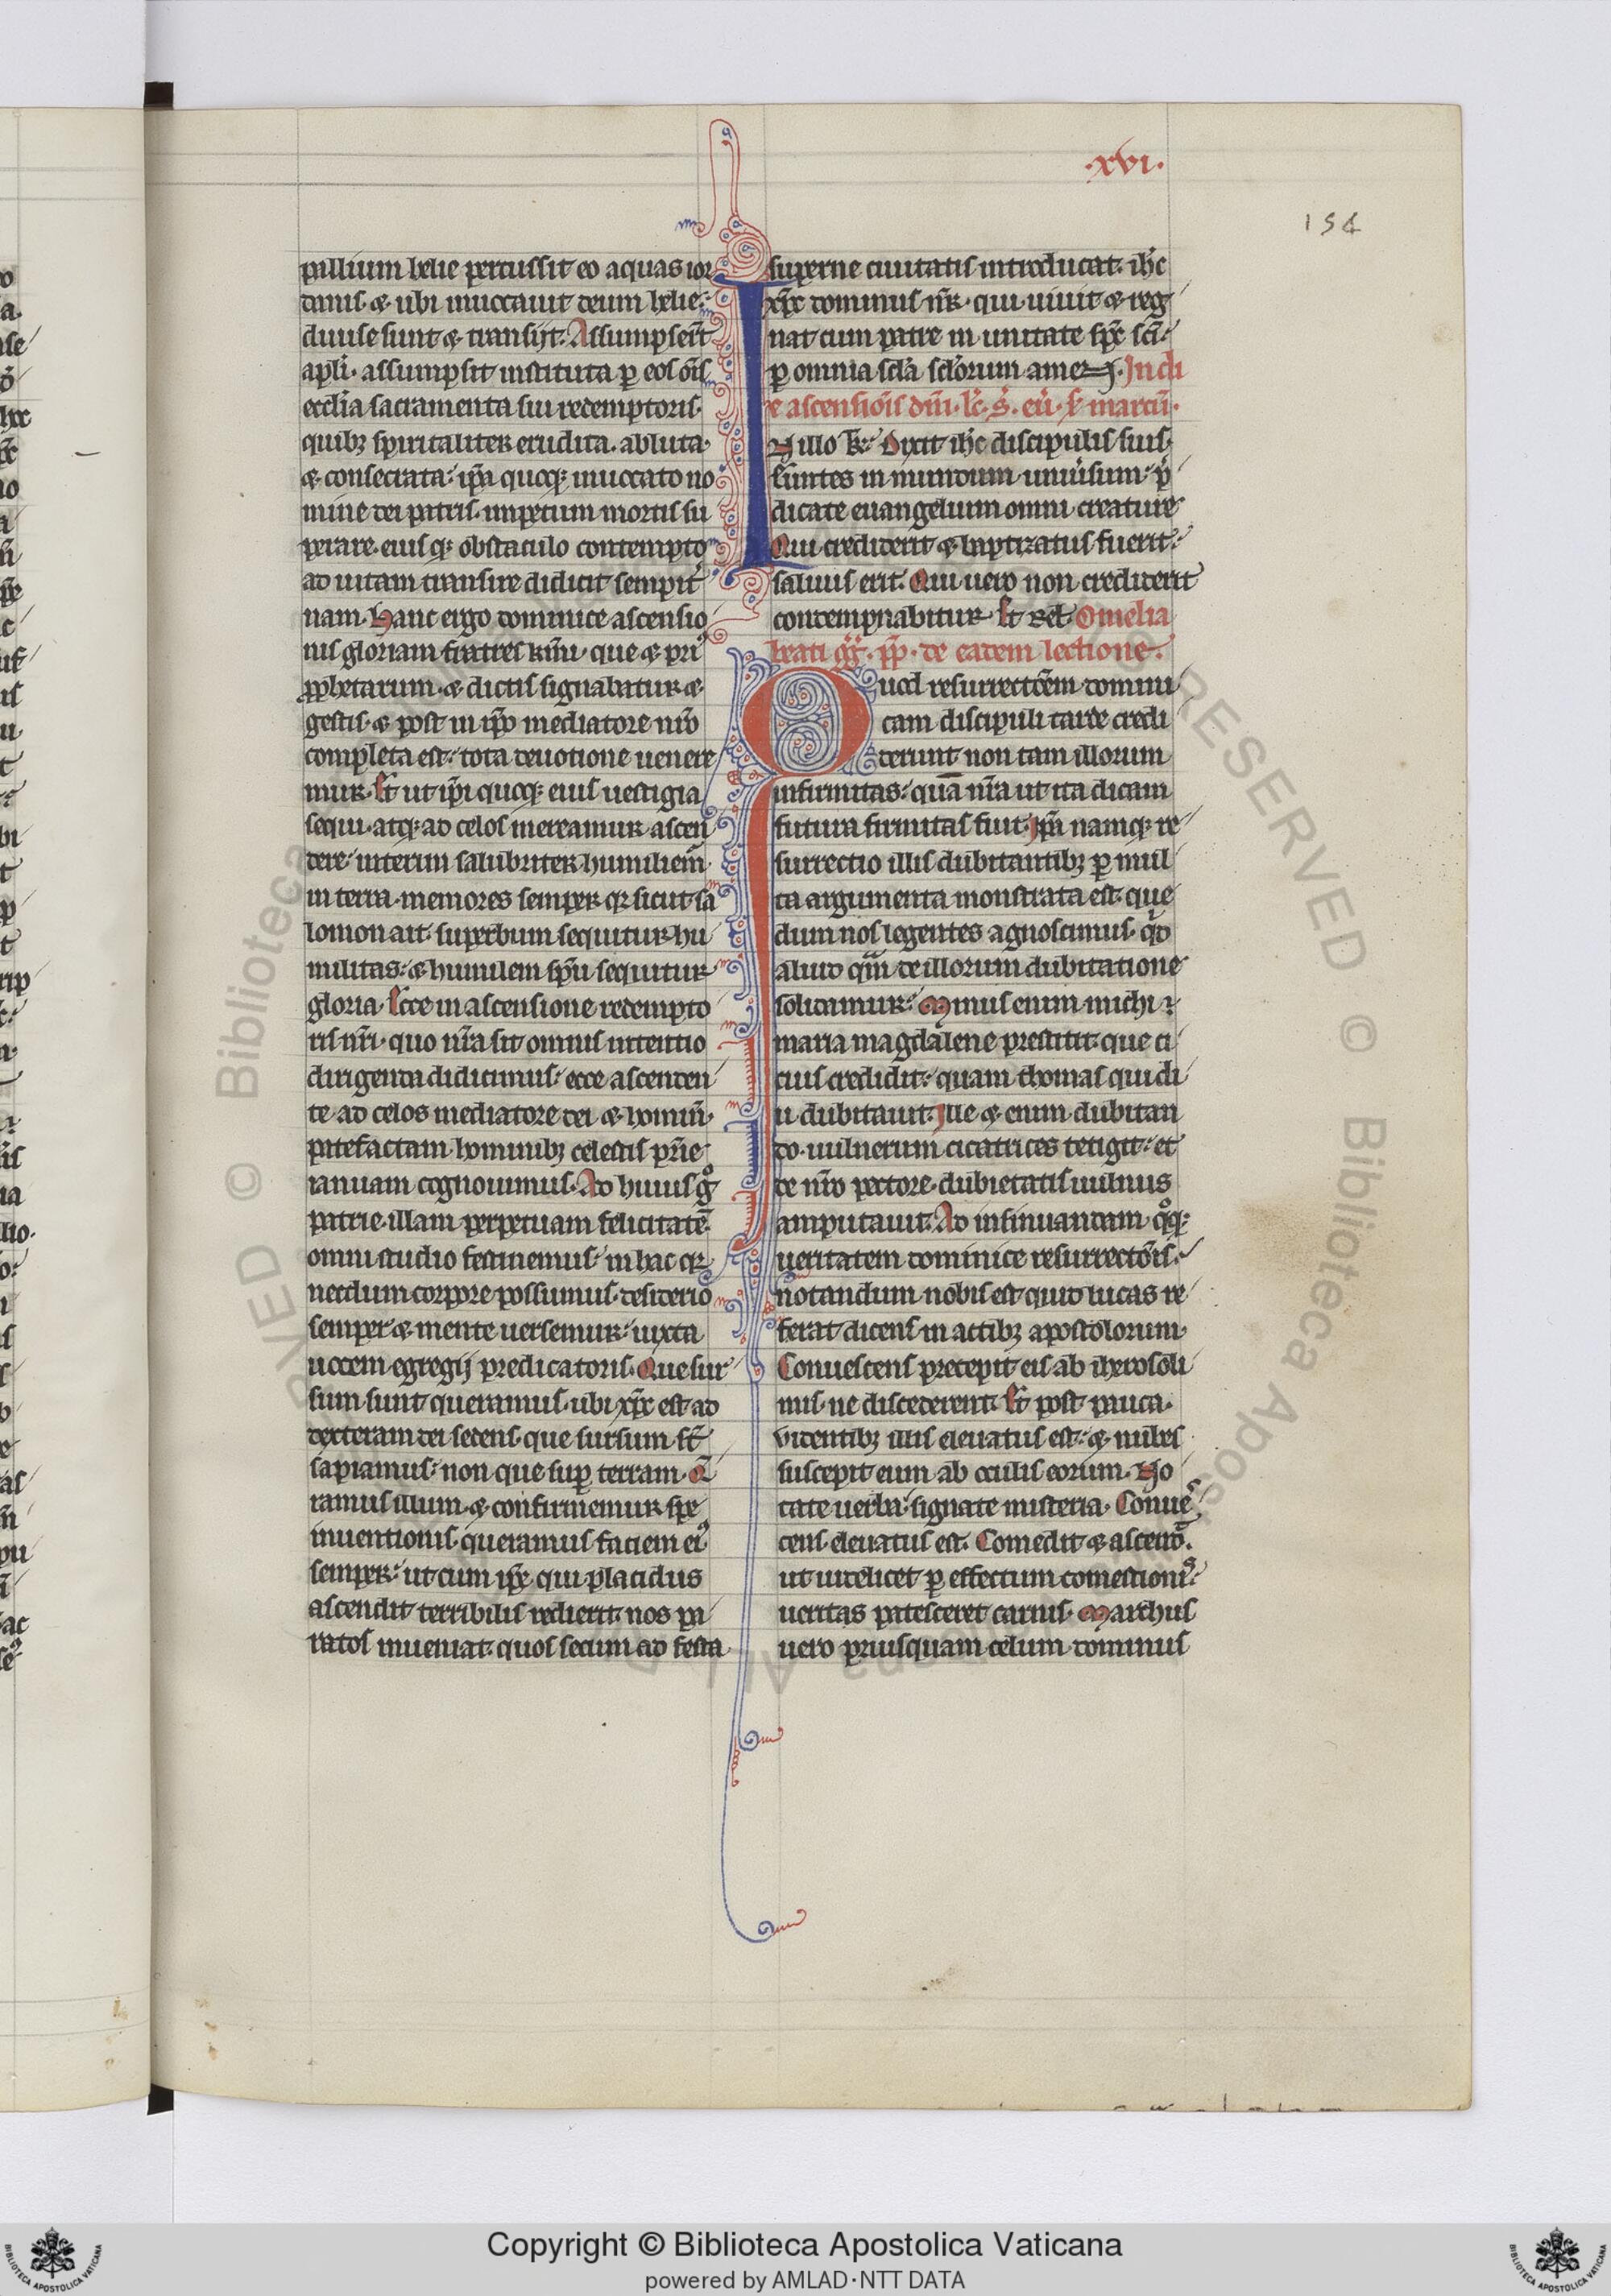 .xvi.
154
pallium helie percussit eo aquas ior
danis. & ubi inuocauit deum helie:
diuise sunt & transijt. Assumpser̄t
apl̓i. assumpsit instituta ꝑ eos oīs
ecclīa sacramenta sui redemptoris.
quibꝫ spiritaliter erudita. abluta.
& consecrata: ip̄a quoqꝫ inuocato no
mine dei patris. impetum mortis su
perare. eiusqꝫ obstaculo contempto
ad uitam transire didicit sempit̓
nam. Hanc ergo dominice ascensio
nis gloriam fratres km̄i. que & priꝰ
ꝓphetarum. & dictis signabatur &
gestis. & post in ip̄o mediatore nr̄o
completa est: tota deuotione uenere
mur. Et ut ip̄i quoqꝫ eius uestigia
sequi. atqꝫ ad celos mereamur ascen
dere: interim salubriter humiliem̄
in terra. memores semper qꝛ sicut sa
lomon ait. superbum sequitur hu
militas: & humilem sp̄u sequitur
gloria. Ecce in ascensione redempto
ris nr̄i. quo nr̄a sit omnis intentio
dirigenda didicimus: ecce ascenden
te ad celos mediatore dei & homin̄.
patefactam hominibꝫ celestis pr̄ie
ianuam cognouimus. Ad huius gͦ
patrie. illam perpetuam felicitatē.
omni studio festinemus: in hac qꝛ
necdum corpore possumus. desiderio
semper & mente uersemur: iuxta
uocem egregij predicatoris. Que sur
sum sunt queramus. ubi xp̄c est ad
dexteram dei sedens. que sursum st̄
sapiamus: non que suꝑ terram. Q̄
ramus illum. & confirmemur spe
inuentionis. queramus faciem eiꝰ
semper: ut cum ip̄e qui placidus
ascendit terribilis redierit. nos pa
ratos inueniat. quos secum ad festa
superne ciuitatis introducat. ih̄c
xp̄c dominus nr̄. qui uiuit & reg
nat cum patre in unitate sp̄c sc̄i.
ꝑ omnia scl̄a scl̄orum amen. In di
e ascensiōis dn̄i. lc̄. s̄. eū. ẜ marcū.
In illo t̄. Dixit ih̄c discipulis suis.
Euntes in mundum uniu̓sum: p̄
dicate euangelium omni creature
Qui crediderit & baptizatus fuerit:
saluus erit. Qui uero non crediderit
contempnabitur. Et rel̄. Omelia
beati gg̓. pp̄. de eadem lectione.
Quod resurrectōem domini
cam discipuli tarde credi
derunt non tam illorum
infirmitas: quā nr̄a ut ita dicam
futura firmitas fuit. Ip̄a namqꝫ re
surrectio illis dubitantibꝫ ꝑ mul
ta argumenta monstrata est. que
dum nos legentes agnoscimus. qͥd
aliud qm̄ de illorum dubitatione
solidamur: Minus enim michi
maria magdalene prestitit. que ci
cius credidit: quam thomas qui di
u dubitauit. Ille & enim dubitan
do. uulnerum cicatrices tetigit: et
de nr̄o pectore. dubietatis uulnus
amputauit. Ad insinuandam qͦqꝫ
ueritatem dominice resurrectōis.
notandum nobis est quid lucas re
ferat dicens in actibꝫ apostolorum
Conuescens precepit eis ab iherosoli
mis. ne discederent. Et post pauca.
videntibꝫ illis eleuatus est: & nubes
suscepit eum ab oculis eorum. No
tate uerba. signate misteria. Conueˢ
cens. eleuatus est. Comedit & ascend̓.
ut uidelicet ꝑ effectum comestioniꝰ
ueritas patesceret carnis. Marchus
uero priusquam celum dominus
Copyright © Biblioteca Apostolica Vaticana
powered by AMLAD·NTT DATA